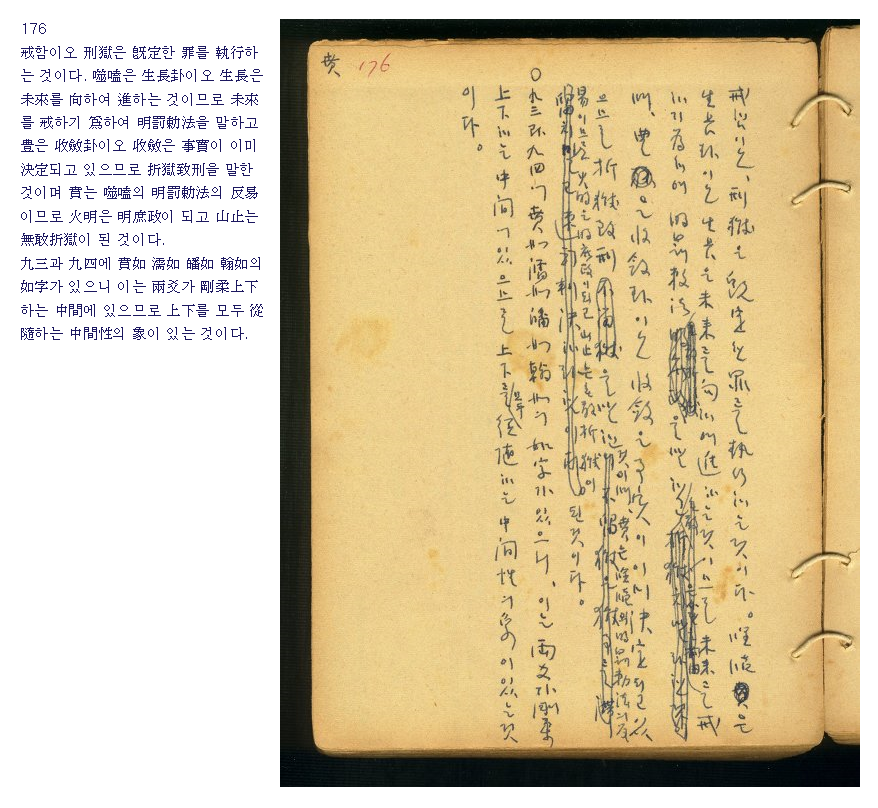 176
戒함이오 刑獄은 旣定한 罪를 執行하
는 것이다. 噬嗑은 生長卦이오 生長은
未來를 向하여 進하는 것이므로 未來
를 戒하기 爲하여 明罰勅法을 말하고
豊은 收斂卦이오 收斂은 事實이 이미
決定되고 있으므로 折獄致刑을 말한
것이며 賁는 噬嗑의 明罰勅法의 反易
이므로 火明은 明庶政이 되고 山止는
無敢折獄이 된 것이다.
九三과 九四에 賁如 濡如 皤如 翰如의
如字가 있으니 이는 兩爻가 剛柔上下
하는 中間에 있으므로 上下를 모두 從
隨하는 中間性의 象이 있는 것이다.
賁 176
戒함이오, 刑獄은 旣定한 罪를 執行하는 것이다. 噬嗑은
生長卦이오 生長은 未來를 向하여 進하는 것이므로 未來를 戒
하기 爲하여 明罰勅法을 말하
며, 豊은 收斂卦이오 收斂은 事實이 이미 決定되고 있
으므로 折獄致刑을 말한 것이며 賁는 噬嗑의 明罰勅法의 反
易이므로 火明은 明庶政이 되고 山止는 無敢折獄이 된 것이다.
○九三과 九四에 賁如 濡如 皤如 翰如의 如字가 있으니, 이는 兩爻가 剛柔
上下하는 中間에 있으므로 上下를 모두 從隨하는 中間性의 象이 있는 것
이다.